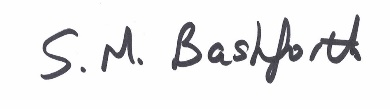 S. M. Bashforth